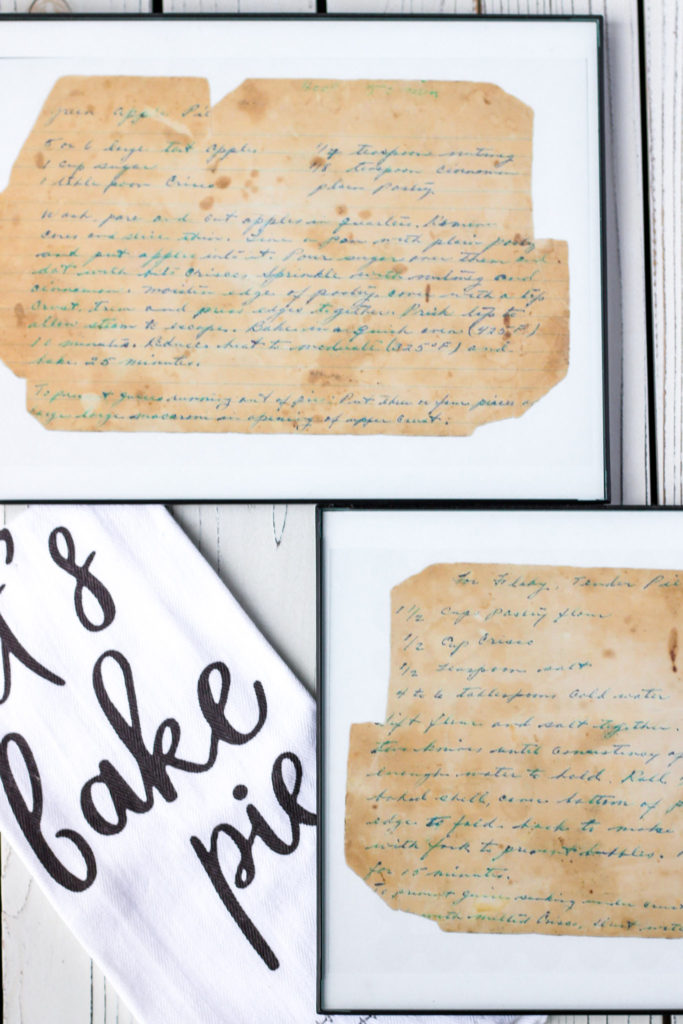 Green Apple Pie
5 or 6 large tart apples
1 cup sugar
1 tablespoon Crisco
1/4 teaspoon nutmeg
1/8 teaspoon cinnamon
plain Pastry
Wash, pare and cut apples in quarters. Remove
cores and slice thin. Line a pan with plain pastry
and put apples into it. Pour sugar over them and
dot with bits Crisco, sprinkle with nutmeg and
cinnamon. moisten edge of pastry, cover with a top
crust, trim and press edges together. Prick top to
allow steam to escape. Bake in a quick oven (425°F)
10 minutes. Reduce heat to moderate (325°F) and
bake 25 minutes.
To prevent juices running out of pie: Put three or four pieces of
large macaroni in opening of upper crust.
t's
bake
pie
For Flaky, Tender Pie
1 1/2 Cups Pastry flour
1/2 Cup Crisco
1/2 Teaspoon salt
4 to 6 tablespoons Cold water
Sift flour and salt together.
two knives until consistency of
enough water to hold. Roll
baked shell, cover bottom of
edge to fold back to make
with fork to prevent bubbles.
for 15 minutes.
To prevent juices soaking under crust
with melted Crisco,